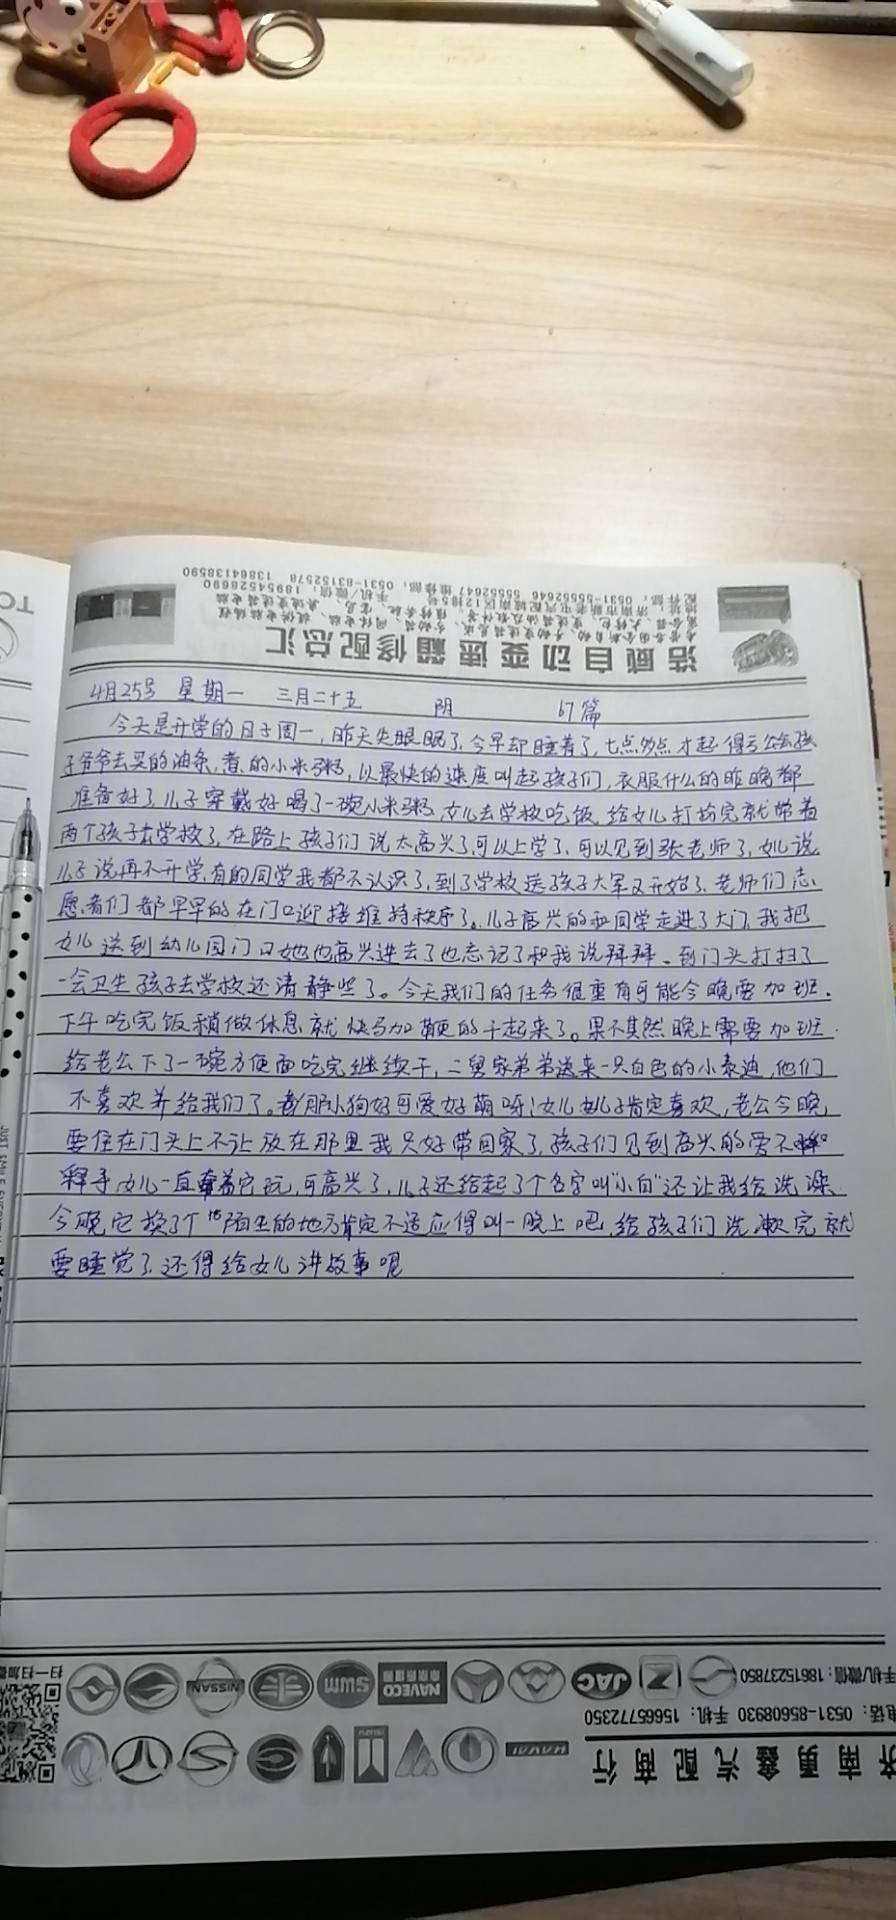 浩威自动变速箱修配总汇
配件部：0531-55552646 55552647 维修部：0531-83152578 13864138590
手机/微信：18954528690
4月25号 星期一 三月二十五 阴 67篇
今天是开学的日子周一，昨天失眼眠了，今早却睡着了，七点多点才起得亏公公孩
子爷爷去买的油条，煮的小米粥，以最快的速度叫起孩子们，衣服什么的昨晚都
准备好了，儿子穿戴好喝了一碗小米粥，女儿去学校吃饭，给女儿打扮完就带着
两个孩子去学校了，在路上孩子们说太高兴了，可以上学了，可以见到张老师了，女儿说
儿子说再不开学，有的同学我都不认识了，到了学校送孩子大军又开始了，老师们志
愿者们都早早的在门口迎接维持秩序了。儿子高兴的和同学走进了大门，我把
女儿送到幼儿园门口她也高兴进去了也忘记了和我说拜拜。到门头打扫了
一会卫生孩子去学校还清静些了。今天我们的任务很重有可能今晚要加班.
下午吃完饭稍做休息就快马加鞭的干起来了。果不其然晚上需要加班
给老公下了一碗方便面吃完继续干，二舅家弟弟送来一只白色的小泰迪，他们
不喜欢养给我们了。那小狗好可爱好萌呀！女儿儿子肯定喜欢，老公今晚
要住在门头上不让放在那里我只好带回家了，孩子们见到高兴的爱不
释手，女儿一直牵着它玩，可高兴了，儿子还给起了个名字叫“小白”还让我给洗澡
今晚它换了个陌生的地方肯定不适应得叫一晚上吧，给孩子们洗漱完就
要睡觉了，还得给女儿讲故事呢
扫一扫加微
NISSAN
SWM
NAVECO
JAC
ISUZU
HAVAL
手机/微信：18615237850
电话：0531-85608930 手机：15665772350
济南勇鑫汽配商行